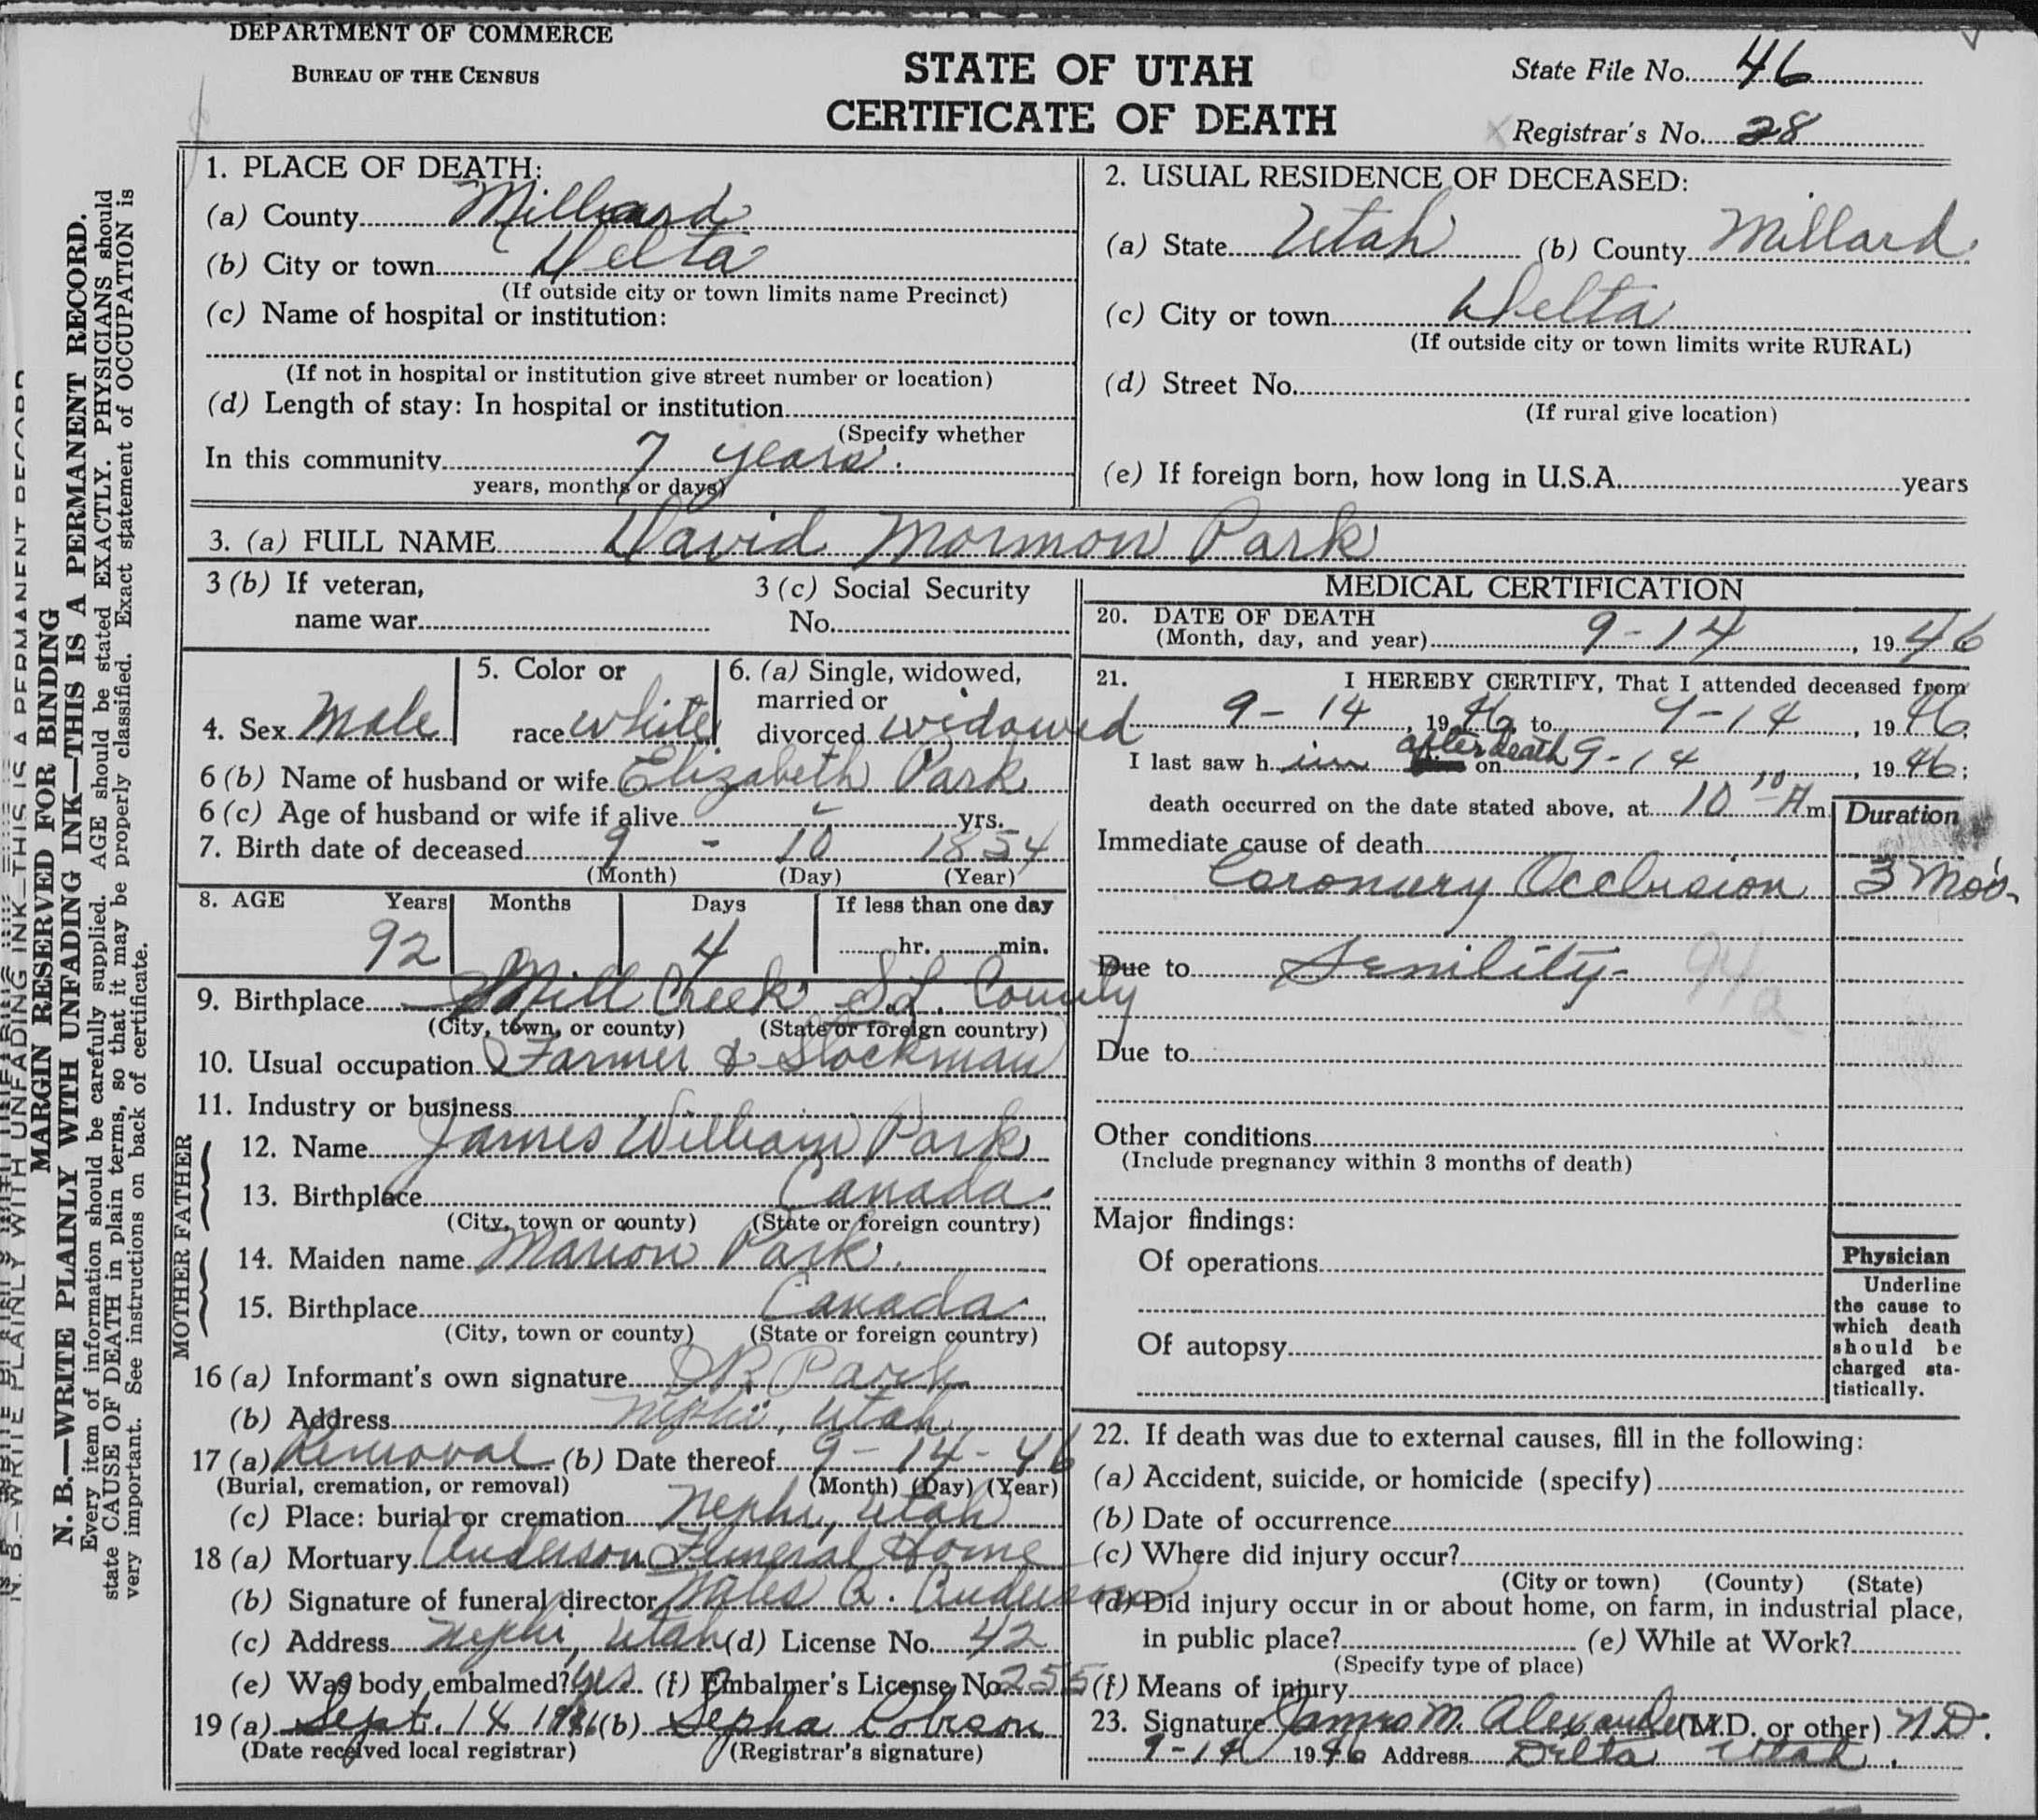 DEPARTMENT OF COMMERCE
BUREAU OF THE CENSUS
STATE OF UTAH
CERTIFICATE OF DEATH
State File No. 46
Registrar's No. 28
MARGIN RESERVED FOR BINDING
N. B.—WRITE PLAINLY WITH UNFADING INK—THIS IS A PERMANENT RECORD.
Every item of information should be carefully supplied. AGE should be stated EXACTLY. PHYSICIANS should
state CAUSE OF DEATH in plain terms, so that it may be properly classified. Exact statement of OCCUPATION is
very important. See instructions on back of certificate.
1. PLACE OF DEATH:
(a) County Millard
(b) City or town Delta
(If outside city or town limits name Precinct)
(c) Name of hospital or institution:
(If not in hospital or institution give street number or location)
(d) Length of stay: In hospital or institution
(Specify whether
In this community 7 years.
years, months or days)
2. USUAL RESIDENCE OF DECEASED:
(a) State Utah (b) County Millard
(c) City or town Delta
(If outside city or town limits write RURAL)
(d) Street No.
(If rural give location)
(e) If foreign born, how long in U.S.A. years
3. (a) FULL NAME David Mormon Park
3 (b) If veteran,
name war
3 (c) Social Security
No.
4. Sex Male
5. Color or
race White
6. (a) Single, widowed,
married or
divorced widowed
6 (b) Name of husband or wife Elizabeth Park
6 (c) Age of husband or wife if alive - yrs.
7. Birth date of deceased 9 - 10 1854
(Month) (Day) (Year)
8. AGE Years Months Days If less than one day
92 4 hr. min.
9. Birthplace Mill Creek S.L. County
(City, town, or county) (State or foreign country)
10. Usual occupation Farmer & Stockman
11. Industry or business
FATHER
12. Name James William Park
13. Birthplace Canada.
(City, town or county) (State or foreign country)
MOTHER
14. Maiden name Marion Park.
15. Birthplace Canada
(City, town or county) (State or foreign country)
16 (a) Informant's own signature Park
(b) Address Nephi, Utah
17 (a) Removal (b) Date thereof 9 - 14 - 46
(Burial, cremation, or removal) (Month) (Day) (Year)
(c) Place: burial or cremation Nephi, Utah
18 (a) Mortuary Anderson Funeral Home
(b) Signature of funeral director A. Anderson
(c) Address Nephi, Utah (d) License No. 42
(e) Was body embalmed? yes (f) Embalmer's License No. 255
19 (a) Sept. 14 1946 (b)
(Date received local registrar) (Registrar's signature)
MEDICAL CERTIFICATION
20. DATE OF DEATH
(Month, day, and year) 9-14, 1946
21. I HEREBY CERTIFY, That I attended deceased from
9-14, 1946 to 9-14, 1946
I last saw him after death on 9-14, 1946;
death occurred on the date stated above, at 10 10 A m.
Duration
Immediate cause of death
Coronary Occlusion 3 Mos.
Due to Senility - 94a
Due to
Other conditions
(Include pregnancy within 3 months of death)
Major findings:
Of operations
Of autopsy
Physician
Underline
the cause to
which death
should be
charged sta-
tistically.
22. If death was due to external causes, fill in the following:
(a) Accident, suicide, or homicide (specify)
(b) Date of occurrence
(c) Where did injury occur?
(City or town) (County) (State)
(d) Did injury occur in or about home, on farm, in industrial place,
in public place? (e) While at Work?
(Specify type of place)
(f) Means of injury
23. Signature James M. Alexander (M.D. or other)
9-14 1946 Address Delta Utah.